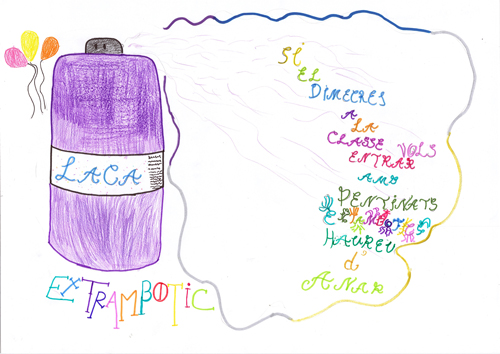 SI
EL
DIMECRES
A
LA
CLASSE VOLS
ENTRAR
AMB
PENTINATS
HAUREU
d'
ANAR
LACA
EXTRAMBOTIC